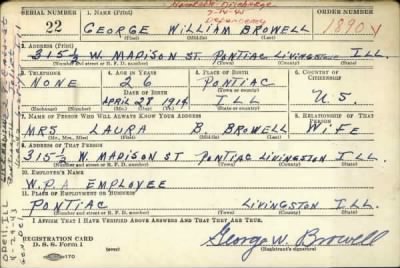 Honorable Discharge
7-14-41
Dependency
SERIAL NUMBER 1. NAME (Print) ORDER NUMBER
22 GEORGE WILLIAM BROWELL 1890
(First) (Middle) (Last)
2. ADDRESS (Print)
315½ W. MADISON ST. PONTIAC LIVINGSTON ILL.
(Number and street or R. F. D. number) (Town) (County) (State)
3. TELEPHONE 4. AGE IN YEARS 5. PLACE OF BIRTH 6. COUNTRY OF CITIZENSHIP
NONE 26 PONTIAC
DATE OF BIRTH (Town or county) U.S.
APRIL 28 1914 ILL
(Exchange) (Number) (Mo.) (Day) (Yr.) (State or country)
7. NAME OF PERSON WHO WILL ALWAYS KNOW YOUR ADDRESS 8. RELATIONSHIP OF THAT PERSON
MRS. LAURA B. BROWELL WIFE
(Mr., Mrs., Miss) (First) (Middle) (Last)
9. ADDRESS OF THAT PERSON
315½ W. MADISON ST PONTIAC LIVINGSTON ILL.
(Number and street or R. F. D. number) (Town) (County) (State)
10. EMPLOYER'S NAME
W.P.A EMPLOYEE
11. PLACE OF EMPLOYMENT OR BUSINESS
PONTIAC LIVINGSTON ILL.
(Number and street or R. F. D. number) (Town) (County) (State)
I AFFIRM THAT I HAVE VERIFIED ABOVE ANSWERS AND THAT THEY ARE TRUE.
REGISTRATION CARD
D. S. S. Form 1 George W. Browell
(Registrant's signature)